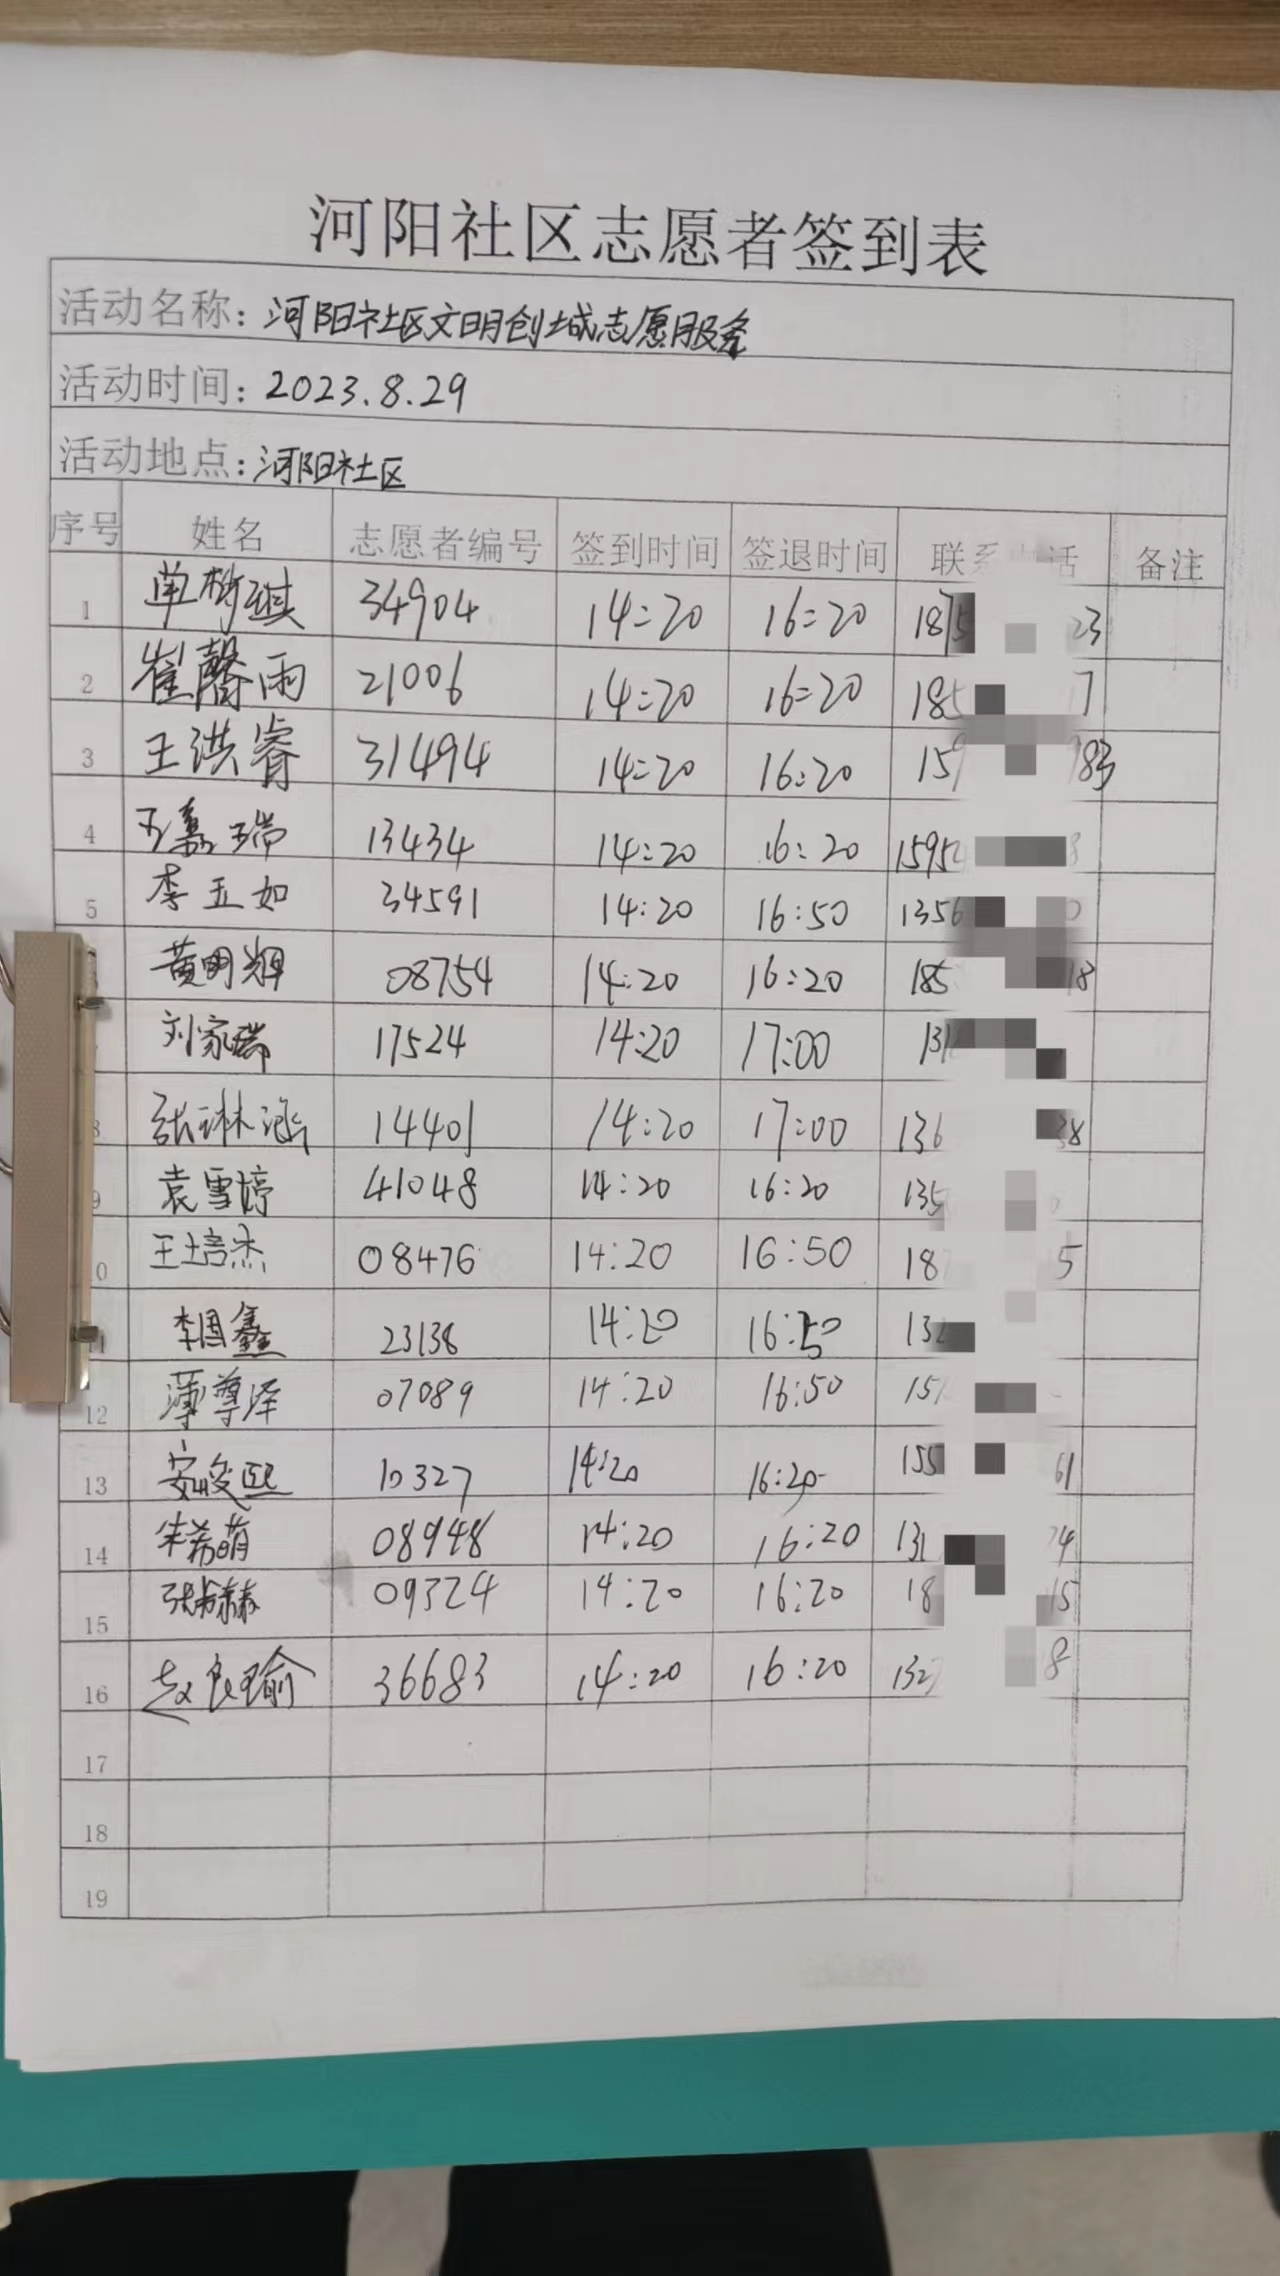 河阳社区志愿者签到表
活动名称：河阳社区文明创城志愿服务
活动时间：2023.8.29
活动地点：河阳社区
序号 姓名 志愿者编号 签到时间 签退时间 联系 话 备注
1 单树琪 34904 14:20 16:20 1875 23
2 崔馨雨 21006 14:20 16:20 185 7
3 王洪睿 31494 14:20 16:20 159 983
4 王嘉瑞 13434 14:20 16:20 1595 8
5 李五如 34591 14:20 16:50 1356 0
黄明辉 08754 14:20 16:20 185 18
刘家瑞 17524 14:20 17:00 131
8 张琳涵 14401 14:20 17:00 136 38
9 袁雪婷 41048 14:20 16:20 135
0 王培杰 08476 14:20 16:50 18 5
李国鑫 23138 14:20 16:50 132
12 薄尊泽 07089 14:20 16:50 151
13 安峻熙 10327 14:20 16:20 155 61
14 朱希萌 08948 14:20 16:20 131 74
15 09324 14:20 16:20 18 15
16 赵良瑜 36683 14:20 16:20 132 8
17
18
19